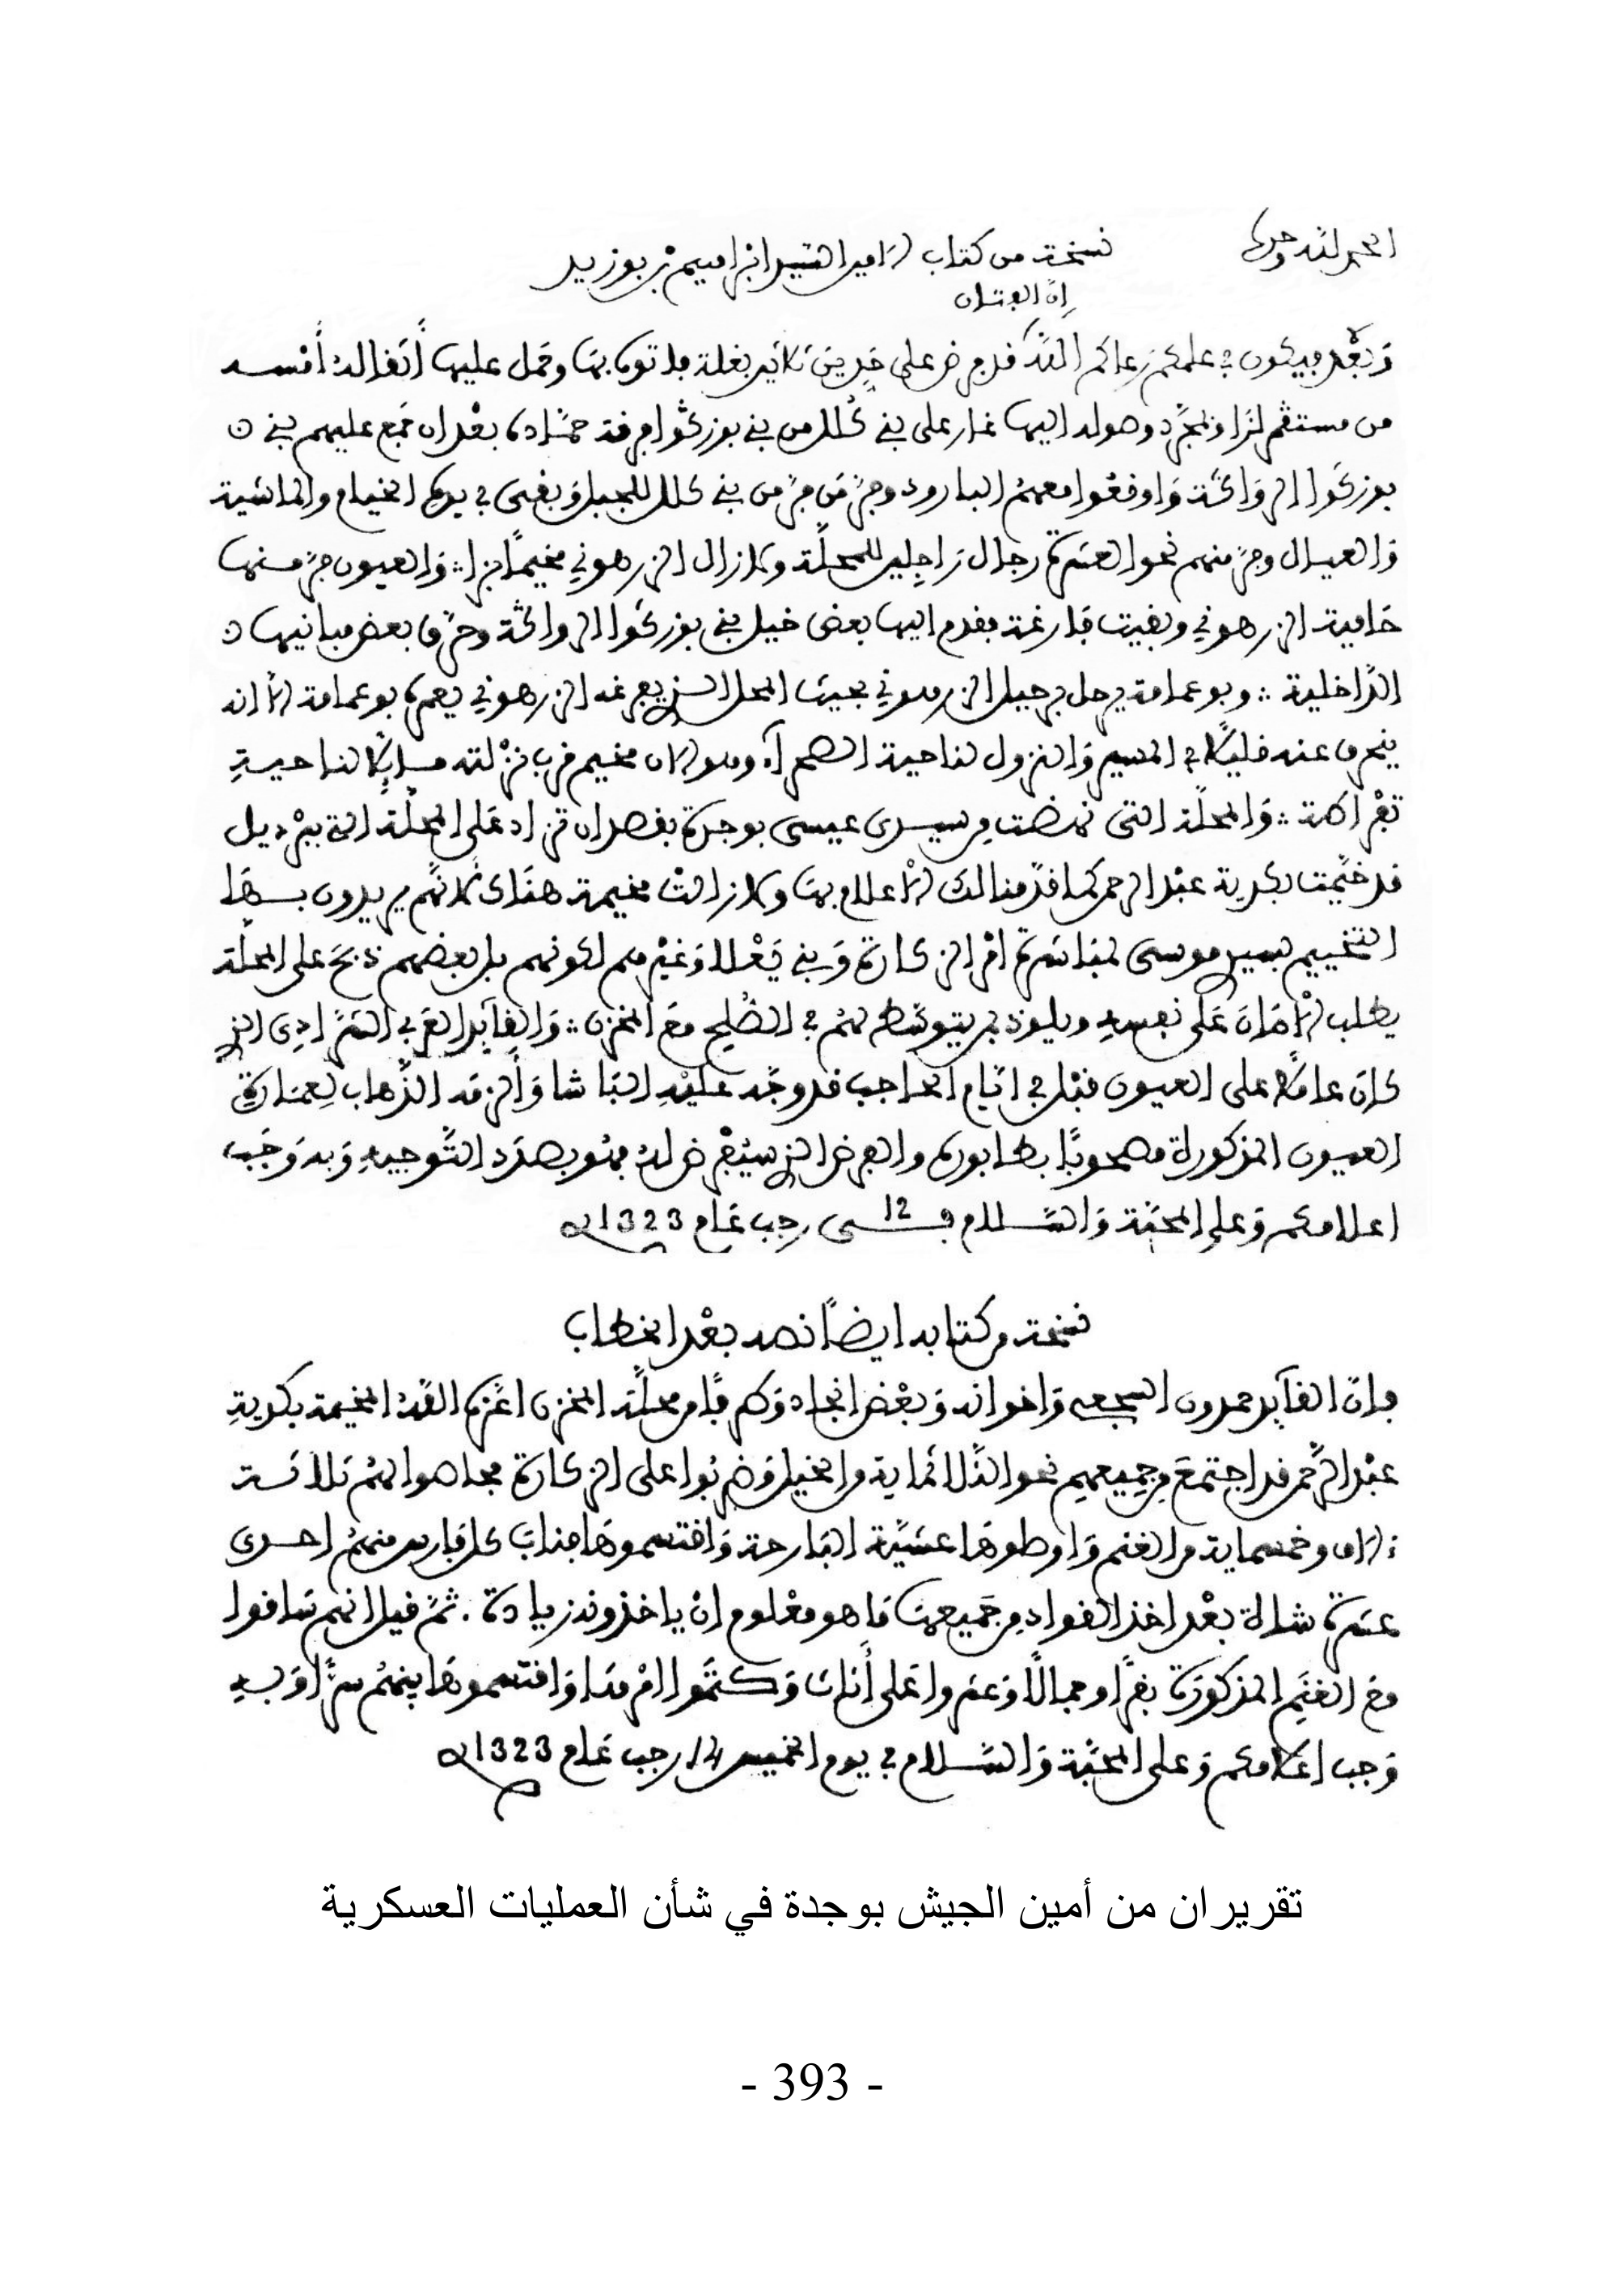 الحمد لله وحده
نسخة من كتاب الامين السيد ابراهيم بن بوزيد
ان الفتان
وَبَعْد فيكون في علمكم رعاكم الله قد فرض على ثلاثين بغلة فاتوه بها وحمل عليها أثقاله أمسه
من مستقره وهو الى اليها غار على بني كلال من بني بوزكوا فرقة حمادة بعد ان جمع عليهم بني
بوزكوا الروائة وَاوقعوا معهم البارود وجر من جر من بني كلال للجبل وَبقى في يده الخيام والماشية
وَالعيال وجر منهم نحو العشرة رجال رَاجلين للمحلّة ولا زال الزرهوني مخيمًا وَالعيون جر منها
حَامية الزرهوني وبقيت فارغة فقدم اليها بعض خيل بني بوزكوا الروائة وحرقوا بعض مبانيها
الدَّاخلية وبوعمامة يرحل برحيل الزرهوني بحيث المحل الذي يفرغه الزرهوني يعمره بوعمامة الا انه
ينحرف عنه قليلا في المسير وَالنزول لناحية الصحرآء وهو الان مخيم قرب نزْلته مسايلا لناحيةِ
تفراطة وَالمحلّة التي نهضت من سيدي عيسى بوجدة بقصد ان تزاد على المحلّة التي ببرديل
قد خيَّمت بكدية عبْد الرحمن كما قدمنا لك الاعلام بها ولا زالت مخيمة هناك لانهم يريدون بهَا
التخييم بسيد موسى لمباشرة امْر الزكارة وَبني يَعْلا وَغيْرهم لكونهم بل بعضهم ذبحَ على المحلّة
يطلب الامَانَ عَلى نفسه ويلوذ بمن يتوسّط لهُم في الصُّلح معَ المخزن وَالقآيد العربي الشرَّادِي الذي
كانَ عاملا على العيون قبْل في ايَّام الحاجب قد وجّه عليْهِ البَاشا وَألزمه الذَّهاب لعمَارةِ
العيون المذكورة مصحوبًا بطابوره والفرض الذي سيُفْرض لهُ فهُو بصدَد التَّوجيهِ وَبه وَجَب
اعلامكم وَعلى المحبَّة وَالسَّلام في 12 رجب عَام 1323
نسخة من كتابه ايضًا نصه بعْد الخطاب
فانّ القآيد حمدون السجعي وَاخوانه وَبعْض انجاد وَكم قَام من محلَّة المخزن اعَزه اللهُ المخيمة بكديةِ
عبْد الرَّحمن قد اجتمعَ من جميعهم نحو الثَّلاثماية من الخيل وَضربُوا على الزكارة فجاهوا لهُم ثلاثة
الاف وخمسماية من الغنم وَاوصلوهَا عشيَّة البَارحة وَاقتسموهَا فنابَ كل فَارس منهُم احدى
عشرة شاة بعْد اخذ القواد من جميعهَا مَا هو معْلوم انْ ياخذونه زيادة. ثمَّ قيل انهم سَاقوا
معَ الغنَم المذكورَة بقرًا وجمالًا وَعثروا عَلى أُناث وَكتمُوا امْر هذا وَاقتسموهَا بينهُم سرًّا وَبهِ
وَجب اعْلامكم وَعلى المحبَّة وَالسَّلام في يوم الخميس 14 رجب عَام 1323
تقريران من أمين الجيش بوجدة في شأن العمليات العسكرية
- 393 -